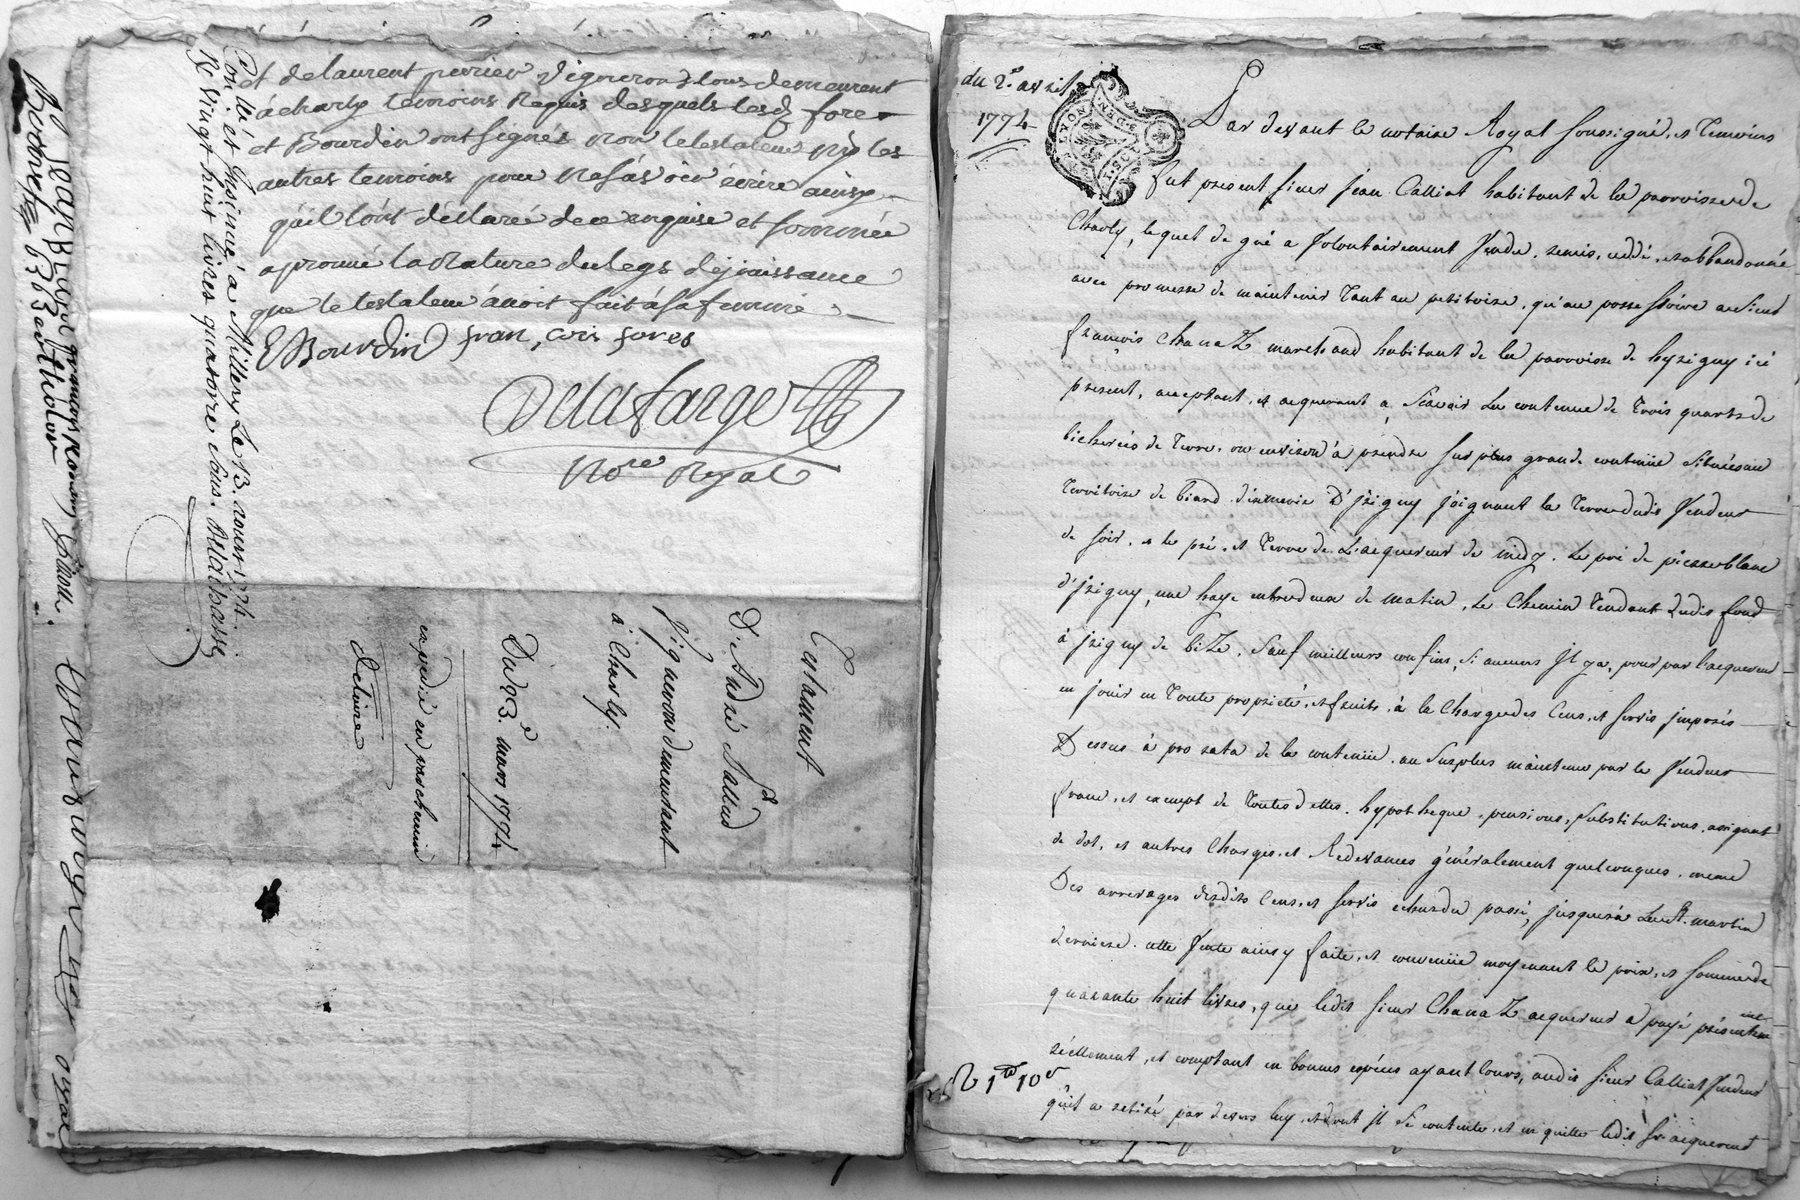 et de laurent perrier vigneron tous demeurant
à charly temoins requis desquels lesd fores
et Bourdin ont signés non le testateur ny les
autres temoins pour ne sçavoir écrire ainsy
qu'il l'ont déclaré de ce enquise et sommée
aprouvé la nature du legs de jouissance
que le testateur avoit fait à sa femme
Bourdin fran,cois fores
Delafarge
No.re Royal
Con.lé et Insinué à Millery le 13. aoust 1774.
Rc vingt huit livres quatorze sous. Delabasse
Testament
D. André
Vigneron demeurant
à Charly.
Du 23.e mars 1774
expedié en parchemin
Deloire
du 2.e avril
1774
Par devant le notaire Royal soussigné, et temoins
fut present sieur Jean Calliat habitant de la parroisse de
Charly, lequel de gré a Volontairement Vendu, remis, ceddé, et abbandonné
avec promesse de maintenir tant au petitoire, qu'au possessoire au sieur
françois Chanaz marchand habitant de la parroisse de hyrigny ici
présent, acceptant, et acquerant, a Sçavoir La contenue de trois quarts de
bicherées de terre, ou environ à prendre sur plus grande contenüe située au
territoire de biard d'irigny joignant la terre dudit Vendeur
de soir, et le pré, et terre de L'acquereur de midy. Le pré de pierreblanc
d'jrigny, une haye entredeux de matin, Le Chemin tendant dudit fond
à jrigny de bize. Sauf meilleurs confins, si aucuns jl ya, pour par l'acquereur
en jouir en toute proprieté, et fruits, à la Charge des Cens, et servis jmposés
Dessus à pro rata de la contenüe. au surplus maintenu par le Vendeur
franc, et exempt de toutes dettes, hypotheque, pensions, substitutions, assignat
de dot, et autres Charges, et Redevances généralement quelconques, meme
Des arrerages desdits Cens, et servis echus du passé, jusqu'à La St. martin
derniere. cette Vente ainsy faite, et convenüe moyenant le prix, et somme de
quarante huit livres, que ledit sieur Chanaz acquereur a payé présentement
réellement, et comptant en bonnes espéces ayant cours, audit sieur Calliat Vendeur
R 1# 10s
qu'il a retiré par devers luy, et dont jl se contente, et en quitte ledit Sr. acquereur